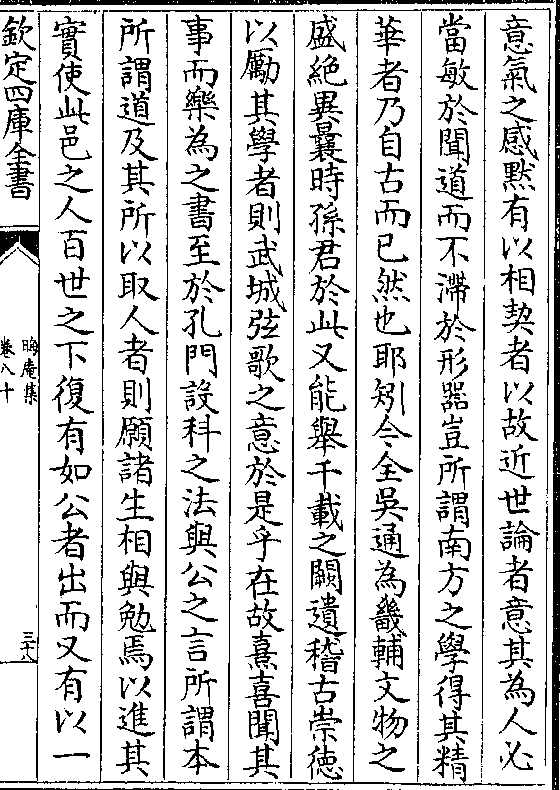 意氣之感黙有以相契者以故近世論者意其為人必
當敏於聞道而不滯於形器豈所謂南方之學得其精
華者乃自古而已然也耶矧今全吳通為畿輔文物之
盛絶異曩時孫君於此又能舉千載之闕遺稽古崇德
以勵其學者則武城弦歌之意於是乎在故熹喜聞其
事而樂為之書至於孔門設科之法與公之言所謂本
所謂道及其所以取人者則願諸生相與勉焉以進其
實使此邑之人百世之下復有如公者出而又有以一
欽定四庫全書
晦庵集
卷八十
三十八